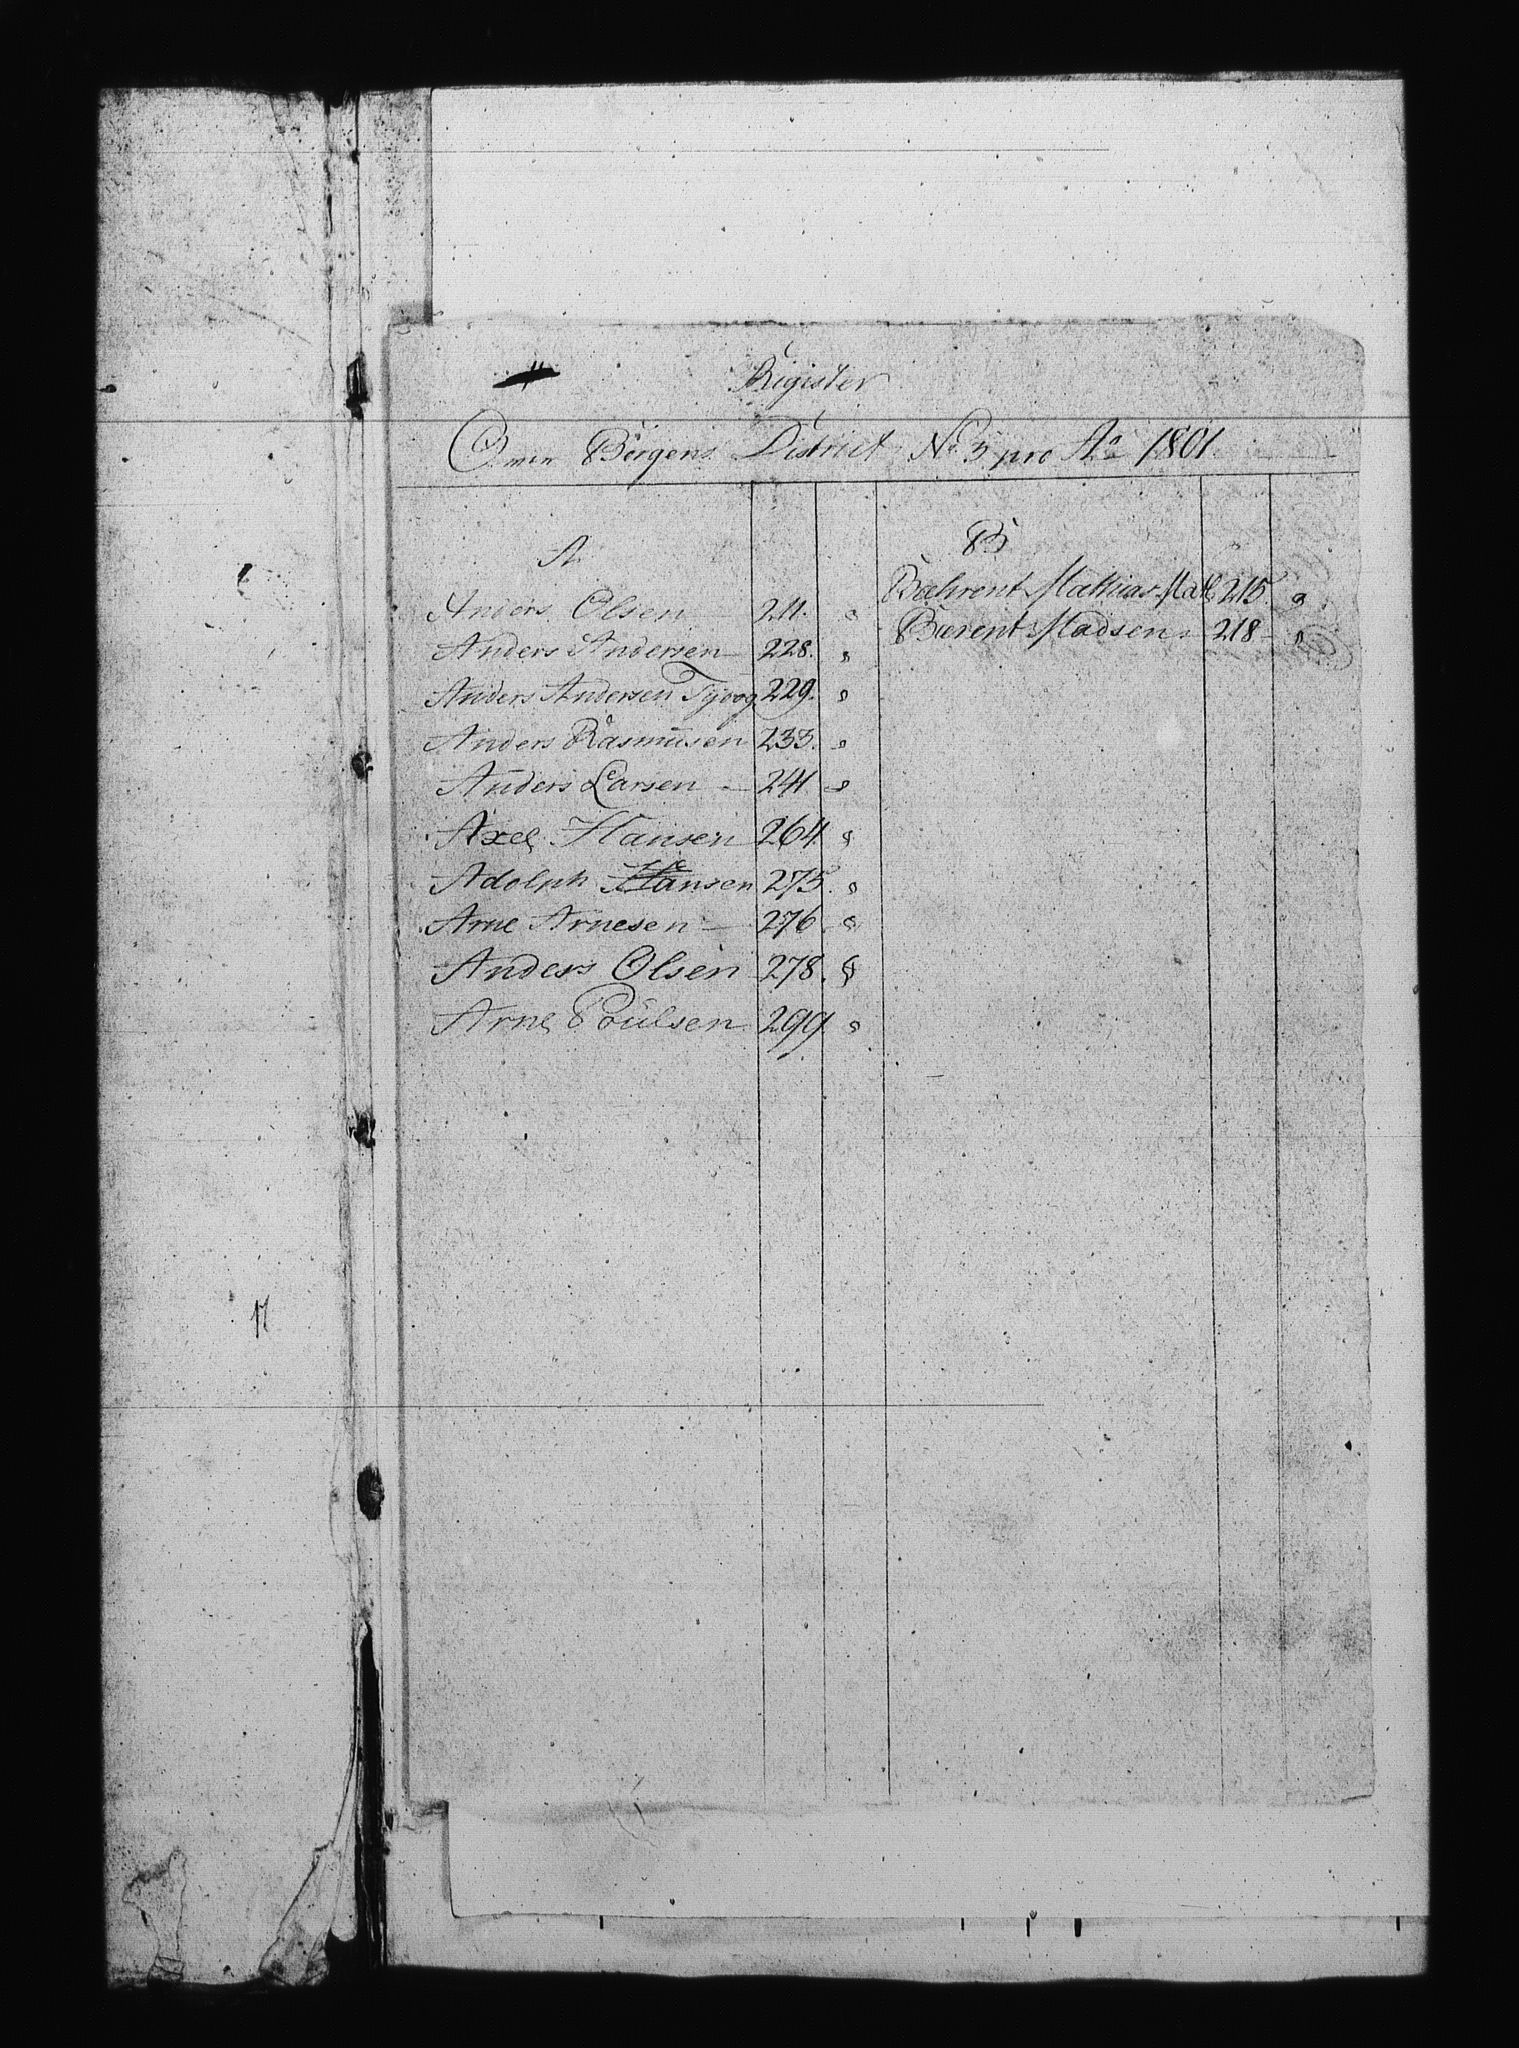 Register
Over Bergens District No 5 pro Ao 1801.
A
Anders Olsen 211.
Anders Andersen 228.
Anders Andersen 229.
Anders Rasmusen 233.
Anders Larsen 241
Axel Hansen 264
Adolph Hansen 275.
Arne Arnesen 276
Anders Olsen 278.
Arne Poulsen 299.
B
Bæhrent Mathias 215.
Bærent Madsen 218